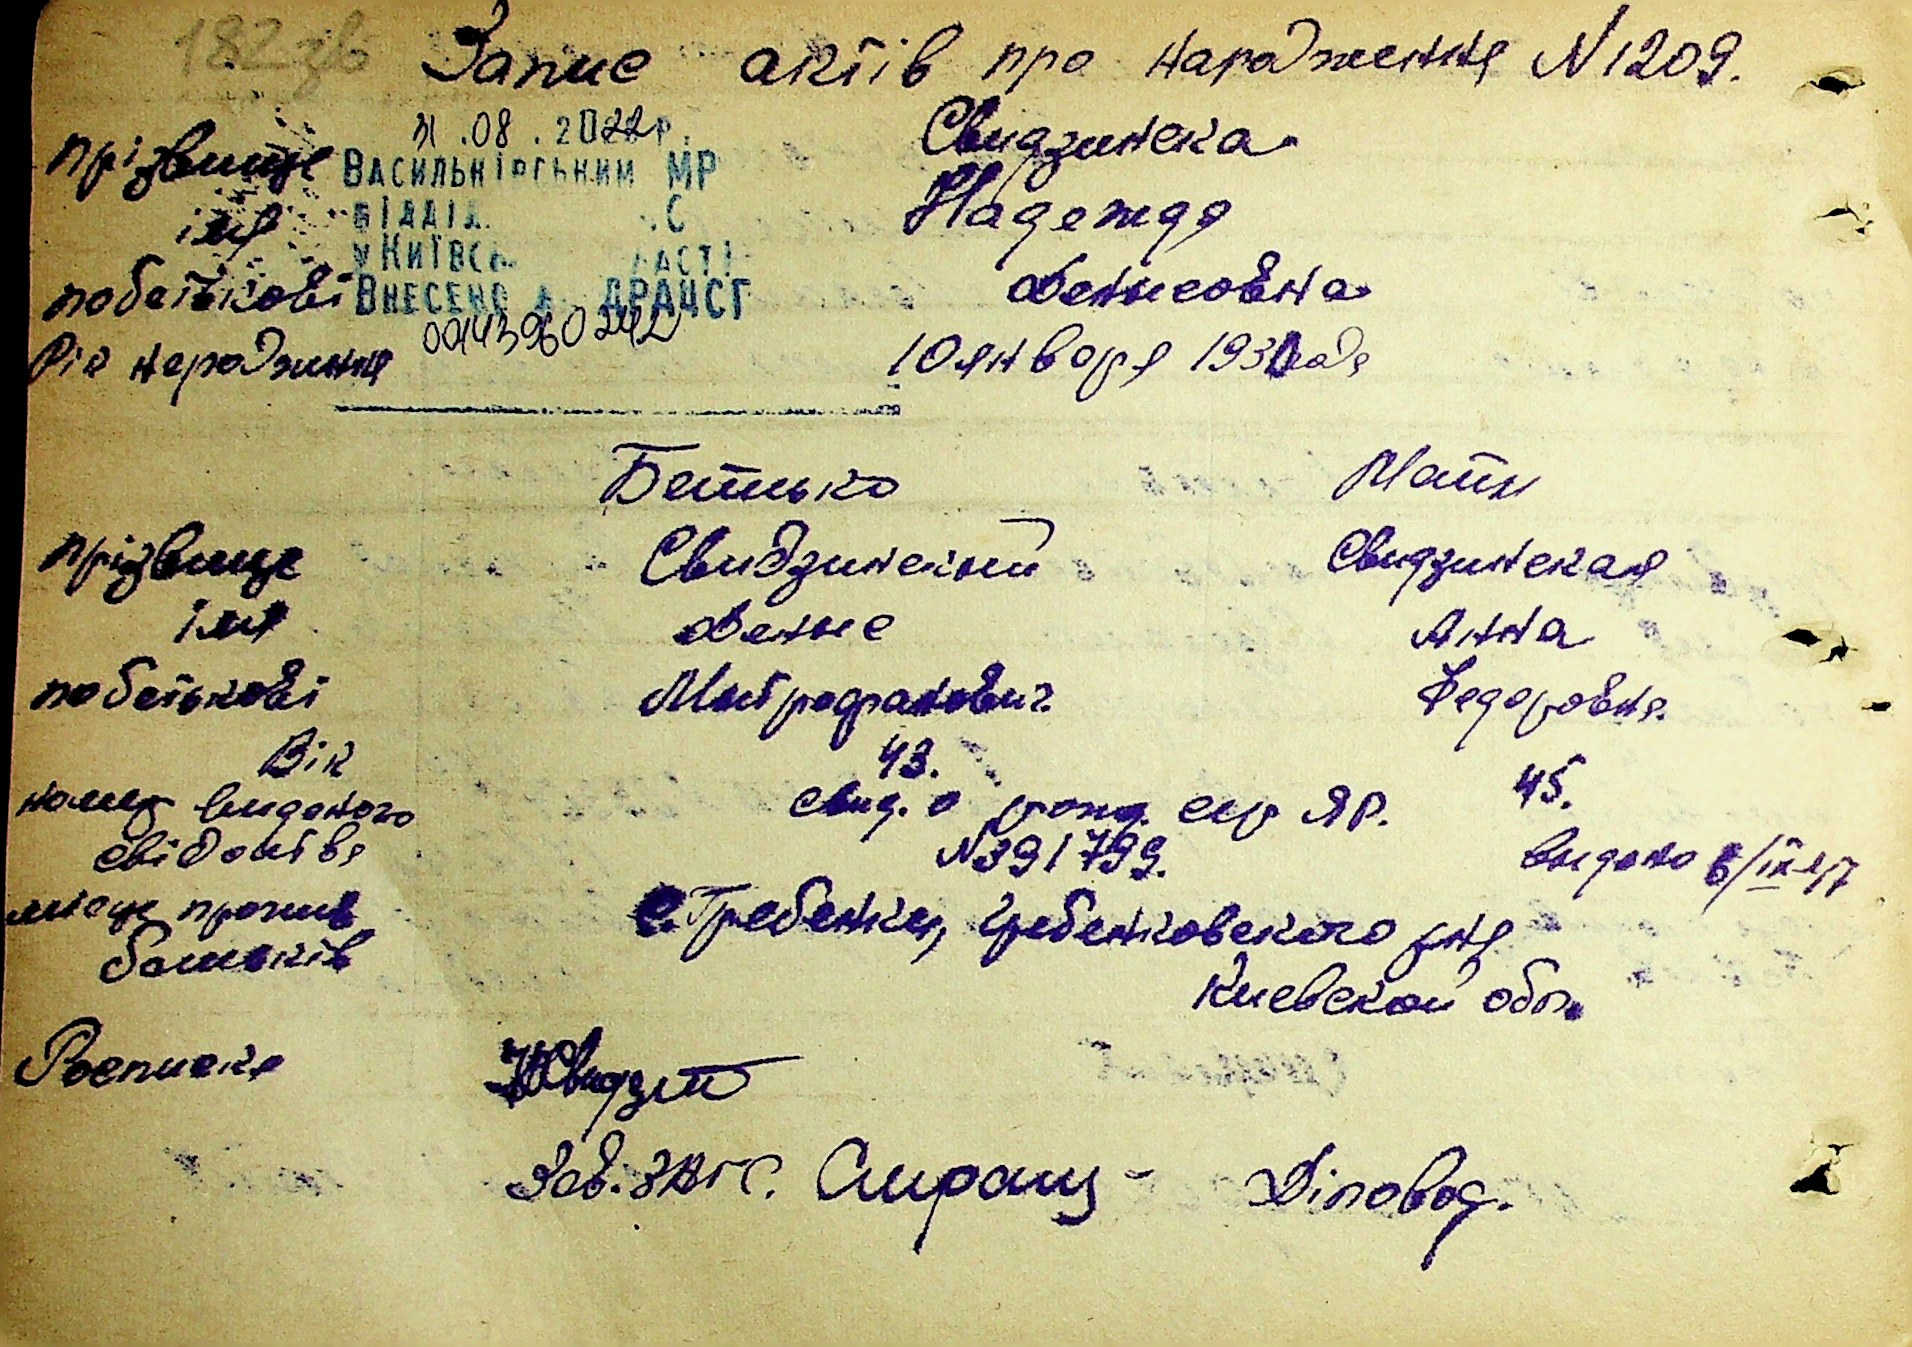 182зв
Запис актів про народження N1209.
31.08.2022р.
Васильківським МР
відділ С
у Київс ласті
Внесено д ДРАЦСГ
00143960242
прізвище Свидзинска
імя Надежда
по батькові Денисовна
Рік народження 10 января 1930 года
Батько Мати
прізвище Свидзинский Свидзинская
імя Денис Анна
по батькові Митрофанович Федоровна.
Вік 43. 45.
номер виданого свид. о рожд. сер ЯР.
свідоцтва N391799. видано 6/IX-47
місце прожив с. Гребенки, Гребенковского р-на
батьків Киевской обл.
Росписка
Зав. ЗАГС. Діловод.